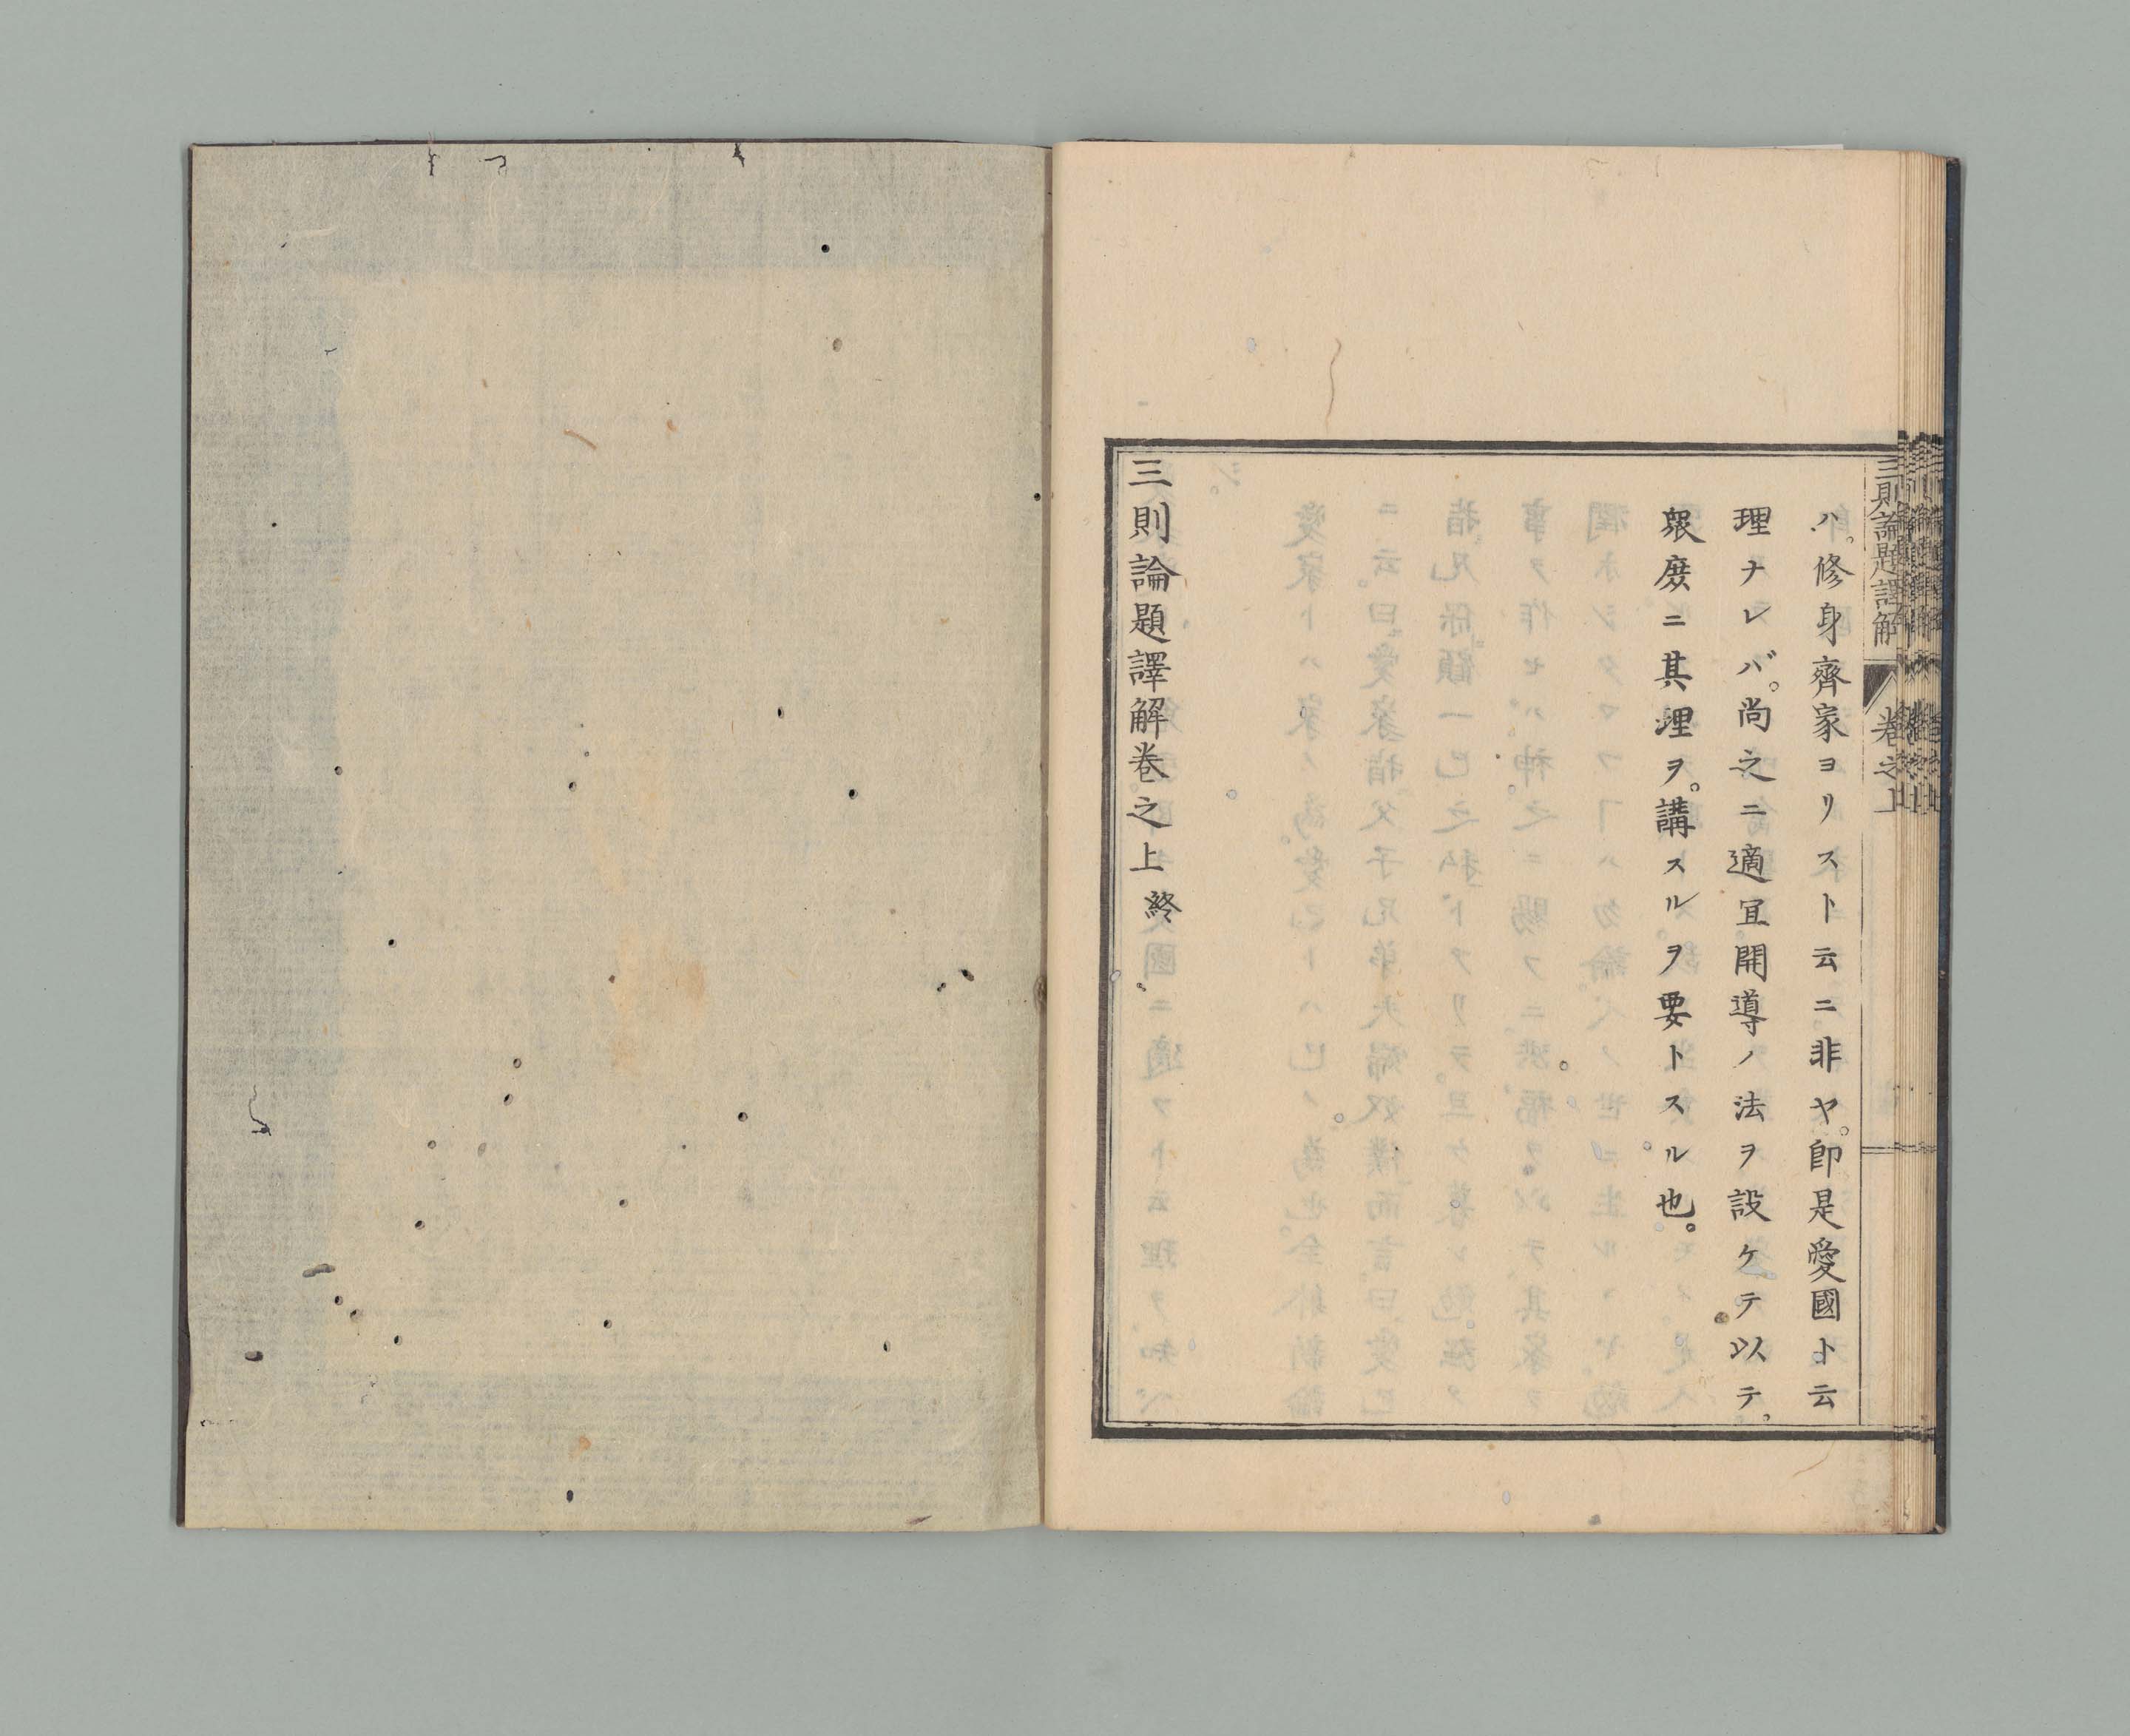 三則論題譯解
卷之上
ハ。修身齊家ヨリスト云ニ非ヤ。卽是愛國ト云
理ナレバ。尚之ニ適宜開導ノ法ヲ設ケテ以テ。
衆庶ニ其理ヲ。講スルヲ要トスル也。
三則論題譯解卷之上 終